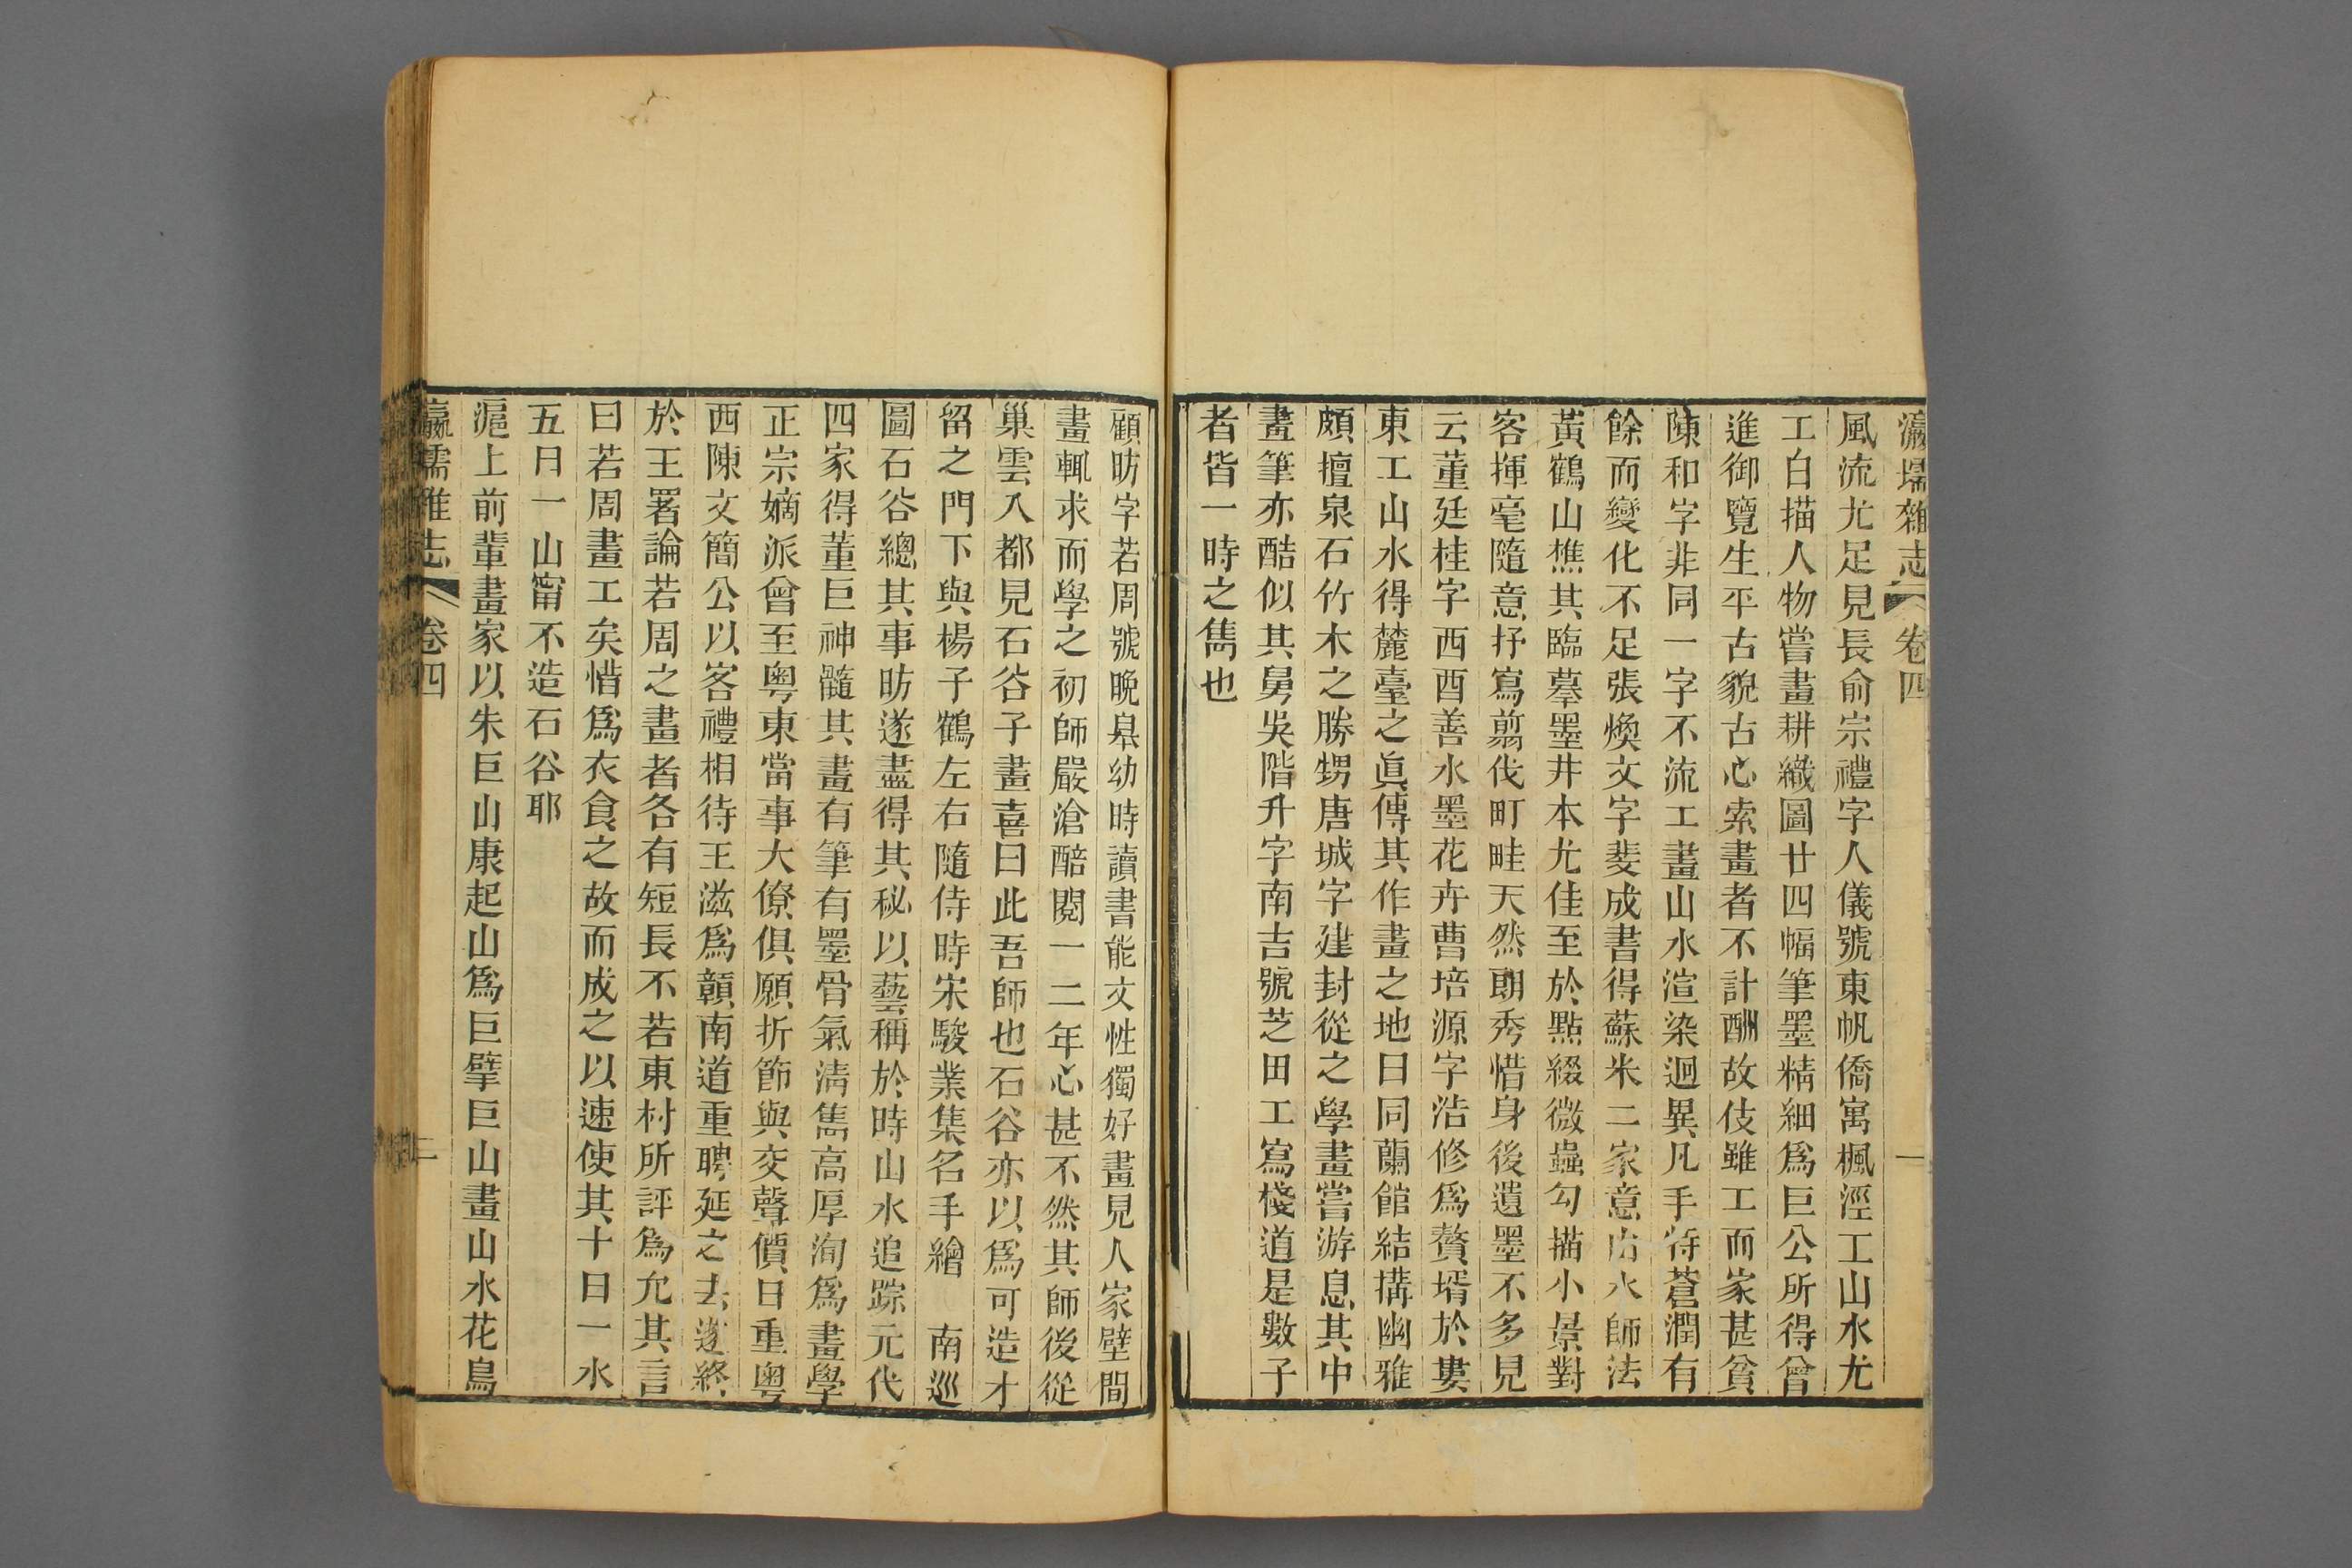 瀛壖雜志 卷四 一
風流尤足見長俞宗禮字人儀號東帆僑寓楓涇工山水尤
工白描人物嘗畫耕織圖廿四幅筆墨精細爲巨公所得曾
進御覽生平古貌古心索畫者不計酬故伎雖工而家甚貧
陳和字非同一字不流工畫山水渲染迥異凡手符蒼潤有
餘而變化不足張煥文字斐成書得蘇米二家意山水師法
黃鶴山樵其臨摹墨井本尤佳至於點綴微蟲勾描小景對
客揮毫隨意抒寫翦伐町畦天然朗秀惜身後遺墨不多見
云董廷桂字西酉善水墨花卉曹培源字浩修爲贅壻於婁
東工山水得麓臺之眞傳其作畫之地曰同蘭館結搆幽雅
頗擅泉石竹木之勝甥唐城字建封從之學畫嘗游息其中
畫筆亦酷似其舅吳階升字南吉號芝田工寫棧道是數子
者皆一時之雋也
顧昉字若周號晚皋幼時讀書能文性獨好畫見人家壁間
畫輒求而學之初師嚴滄醅閱一二年心甚不然其師後從
巢雲入都見石谷子畫喜曰此吾師也石谷亦以爲可造才
留之門下與楊子鶴左右隨侍時宋駿業集名手繪 南巡
圖石谷總其事昉遂盡得其秘以藝稱於時山水追踪元代
四家得董巨神髓其畫有筆有墨骨氣淸雋高厚洵爲畫學
正宗嫡派曾至粵東當事大僚俱願折節與交聲價日重粵
西陳文簡公以客禮相待王滋爲贛南道重聘延之去遂終
於王署論若周之畫者各有短長不若東村所評爲允其言
曰若周畫工矣惜爲衣食之故而成之以速使其十日一水
五日一山甯不造石谷耶
滬上前輩畫家以朱巨山康起山爲巨擘巨山畫山水花鳥
瀛壖雜志 卷四 二